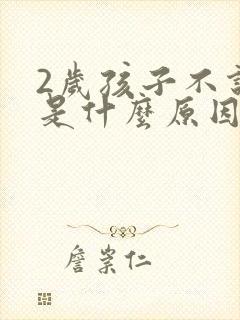 2歲孩子不
是什麼原因
詹崇仁